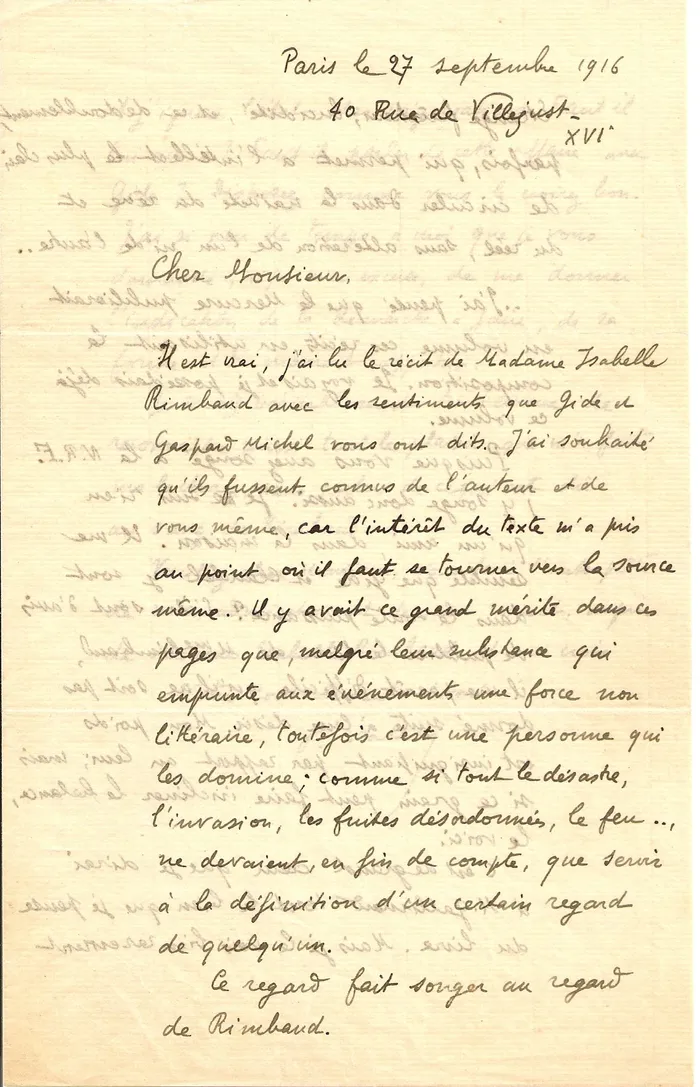 Paris le 27 septembre 1916
40 Rue de Villejust-
XVI
Cher Monsieur,
Il est vrai, j'ai lu le récit de Madame Isabelle
Rimbaud avec les sentiments que Gide et
Gaspard Michel vous ont dits. J'ai souhaité
qu'ils fussent connus de l'auteur et de
vous même, car l'intérêt du texte m'a pris
au point où il faut se tourner vers la source
même. Il y avait ce grand mérite dans ces
pages que, malgré leur substance qui
emprunte aux événements une force non
littéraire, toutefois c'est une personne qui
les domine; comme si tout le désastre,
l'invasion, les fuites désordonnées, le feu ..,
ne devaient, en fin de compte, que servir
à la définition d'un certain regard
de quelqu'un.
Ce regard fait songer au regard
de Rimbaud.